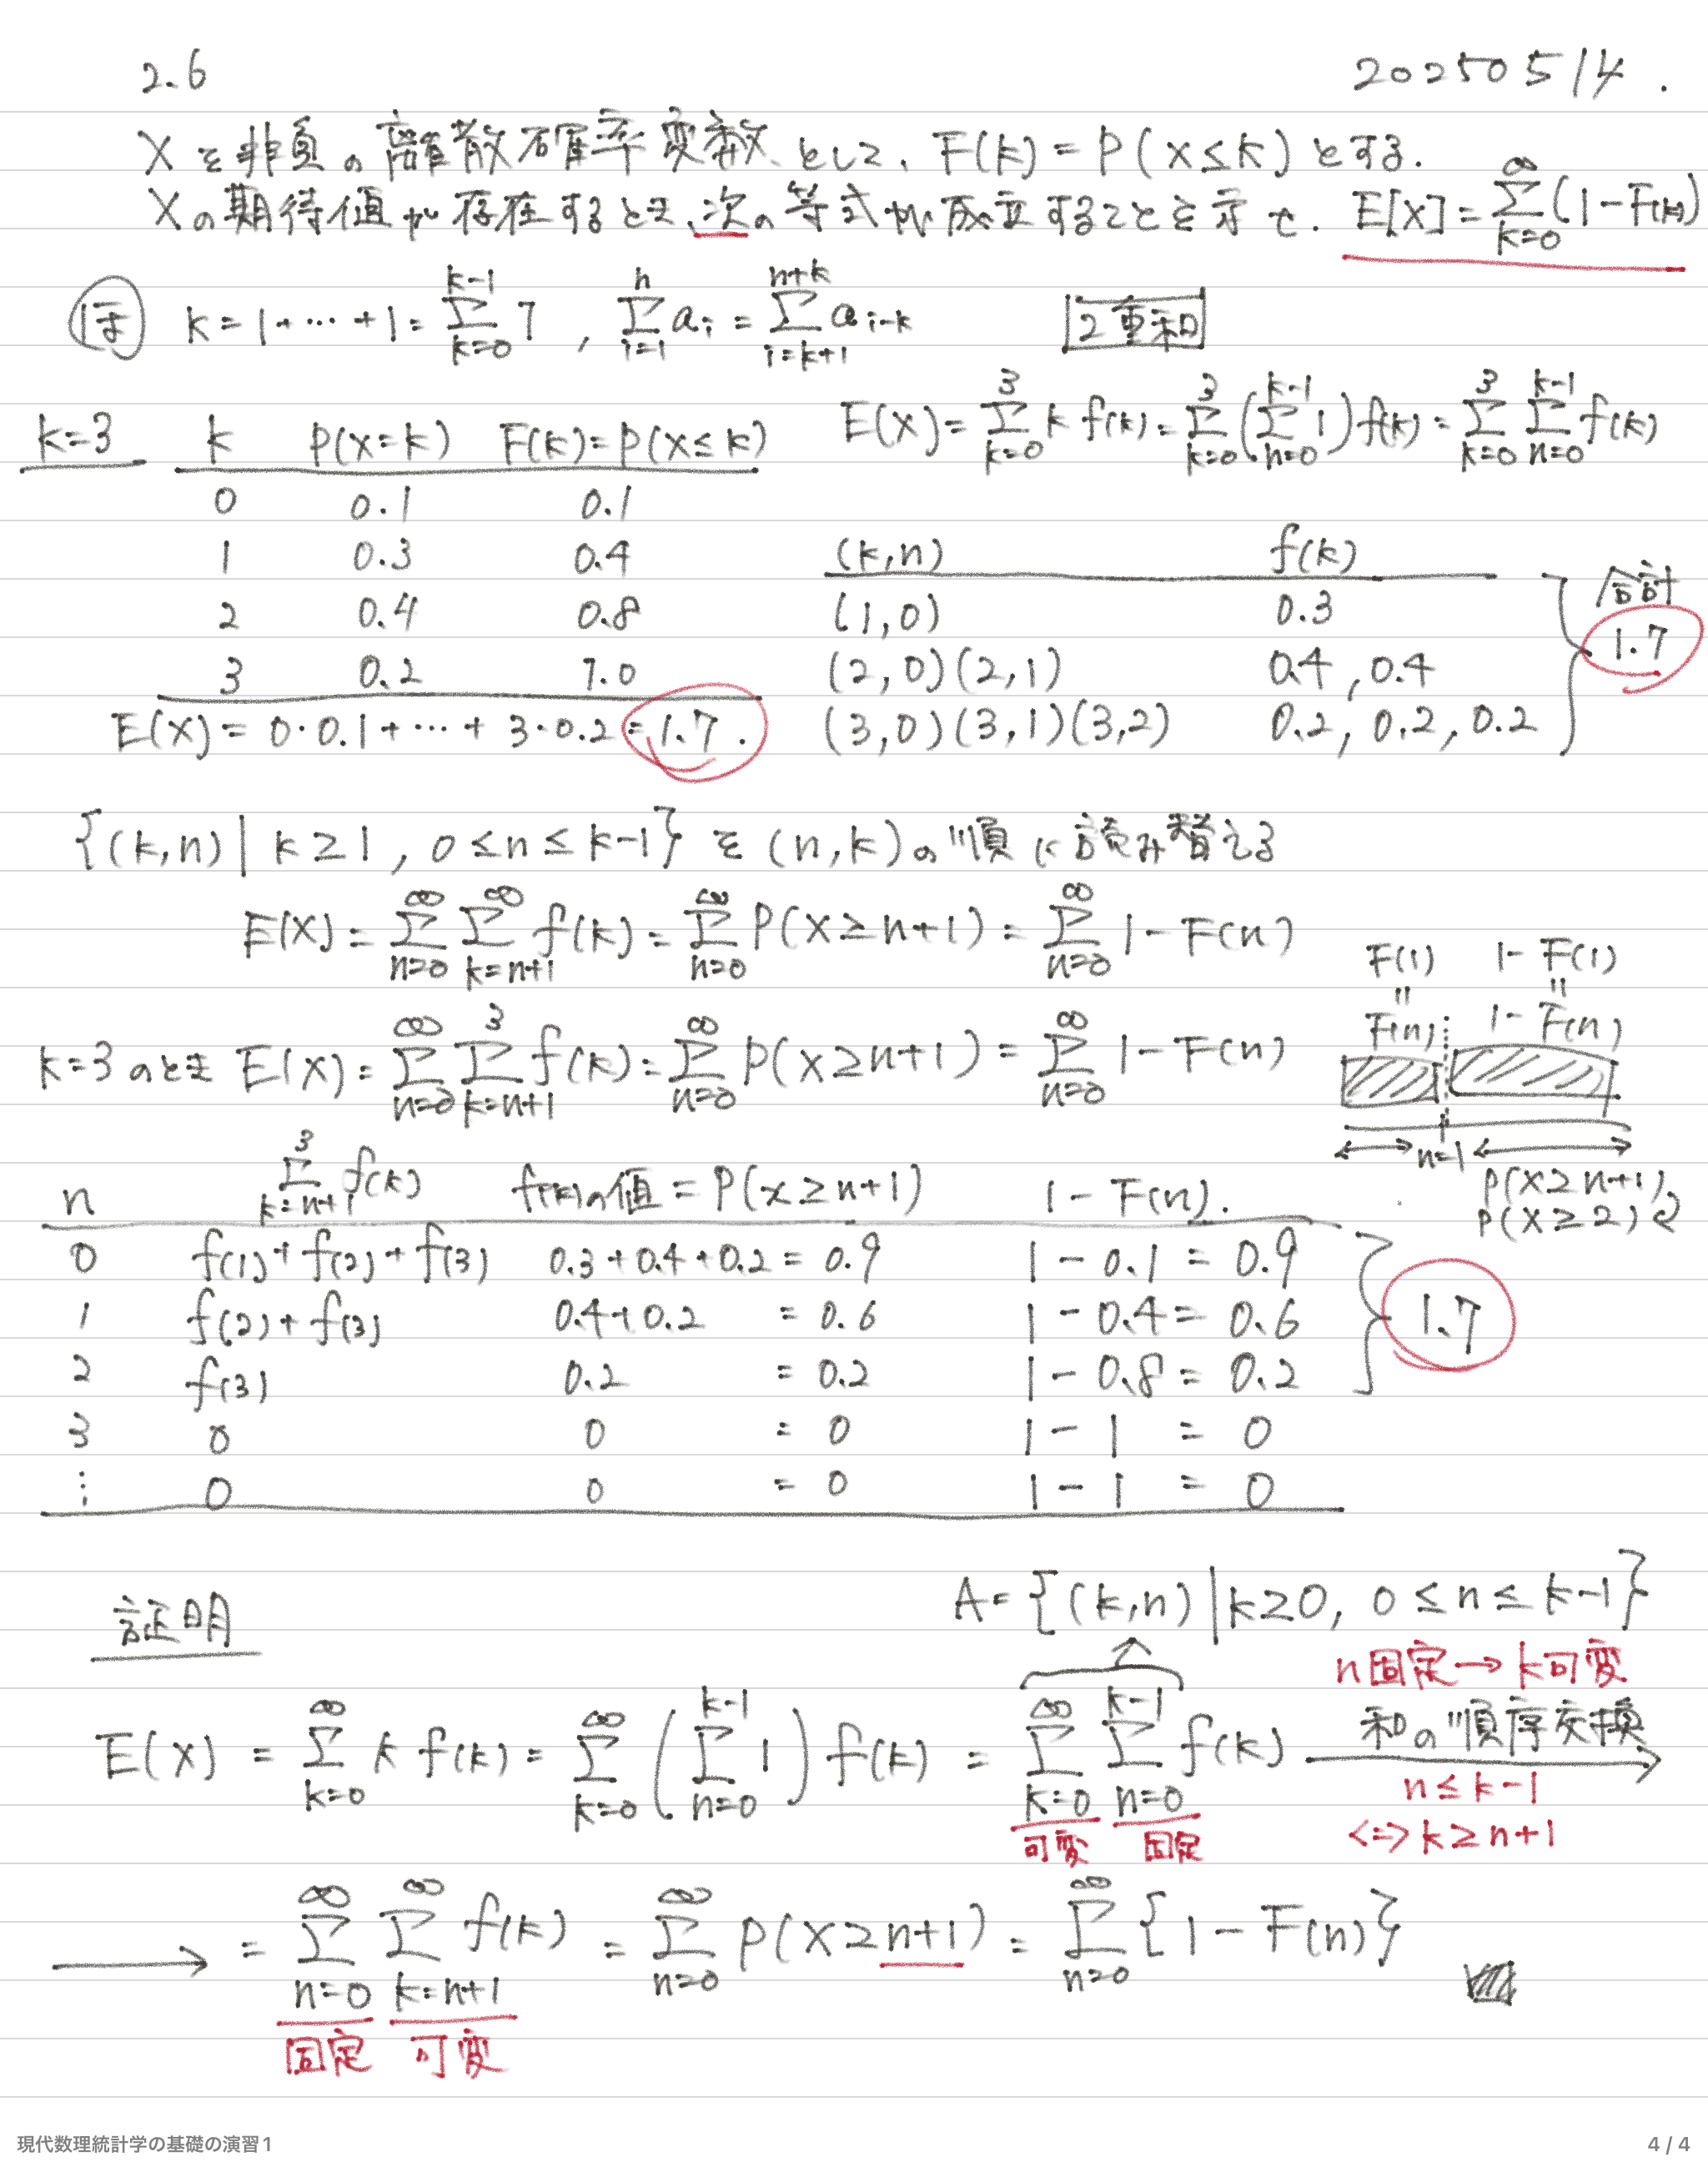 2.6
20250514.
Xを非負の離散確率変数として、F(k)=P(X≤k)とする.
Xの期待値が存在するとき、次の等式が成立することを示せ. E[X]=∑_{k=0}^{∞}(1-F(k))
k=1+…+1=∑_{k=0}^{k-1}1, ∑_{i=1}^{n}a_i=∑_{i=k+1}^{n+k}a_{i-k} 2重和
E(X)=∑_{k=0}^{3}k f(k)=∑_{k=0}^{3}(∑_{n=0}^{k-1}1)f(k)=∑_{k=0}^{3}∑_{n=0}^{k-1}f(k)
k=3 k P(X=k) F(k)=P(X≤k)
0 0.1 0.1
1 0.3 0.4
2 0.4 0.8
3 0.2 1.0
E(X)=0·0.1+…+3·0.2=1.7.
(k,n) f(k)
(1,0) 0.3
(2,0)(2,1) 0.4, 0.4
(3,0)(3,1)(3,2) 0.2, 0.2, 0.2
合計
1.7
{(k,n)|k≥1, 0≤n≤k-1}を(n,k)の順に読み替える
E(X)=∑_{n=0}^{∞}∑_{k=n+1}^{∞}f(k)=∑_{n=0}^{∞}P(X≥n+1)=∑_{n=0}^{∞}1-F(n)
k=3のとき E(X)=∑_{n=0}^{∞}∑_{k=n+1}^{3}f(k)=∑_{n=0}^{∞}P(X≥n+1)=∑_{n=0}^{∞}1-F(n)
F(1) 1-F(1)
|| ||
F(n) 1-F(n)
n=1
P(X≥n+1)
P(X≥2)
n ∑_{k=n+1}^{3}f(k) f(k)の値=P(X≥n+1) 1-F(n).
0 f(1)+f(2)+f(3) 0.3+0.4+0.2=0.9 1-0.1=0.9
1 f(2)+f(3) 0.4+0.2=0.6 1-0.4=0.6
2 f(3) 0.2=0.2 1-0.8=0.2
3 0 0=0 1-1=0
⋮ 0 0=0 1-1=0
1.7
証明
A={(k,n)|k≥0, 0≤n≤k-1}
n固定→k可変
E(X)=∑_{k=0}^{∞}k f(k)=∑_{k=0}^{∞}(∑_{n=0}^{k-1}1)f(k)=∑_{k=0}^{∞}∑_{n=0}^{k-1}f(k) 和の順序交換
n≤k-1
可変 固定 ⇔k≥n+1
→=∑_{n=0}^{∞}∑_{k=n+1}^{∞}f(k)=∑_{n=0}^{∞}P(X≥n+1)=∑_{n=0}^{∞}{1-F(n)}
固定 可変
現代数理統計学の基礎の演習1
4 / 4